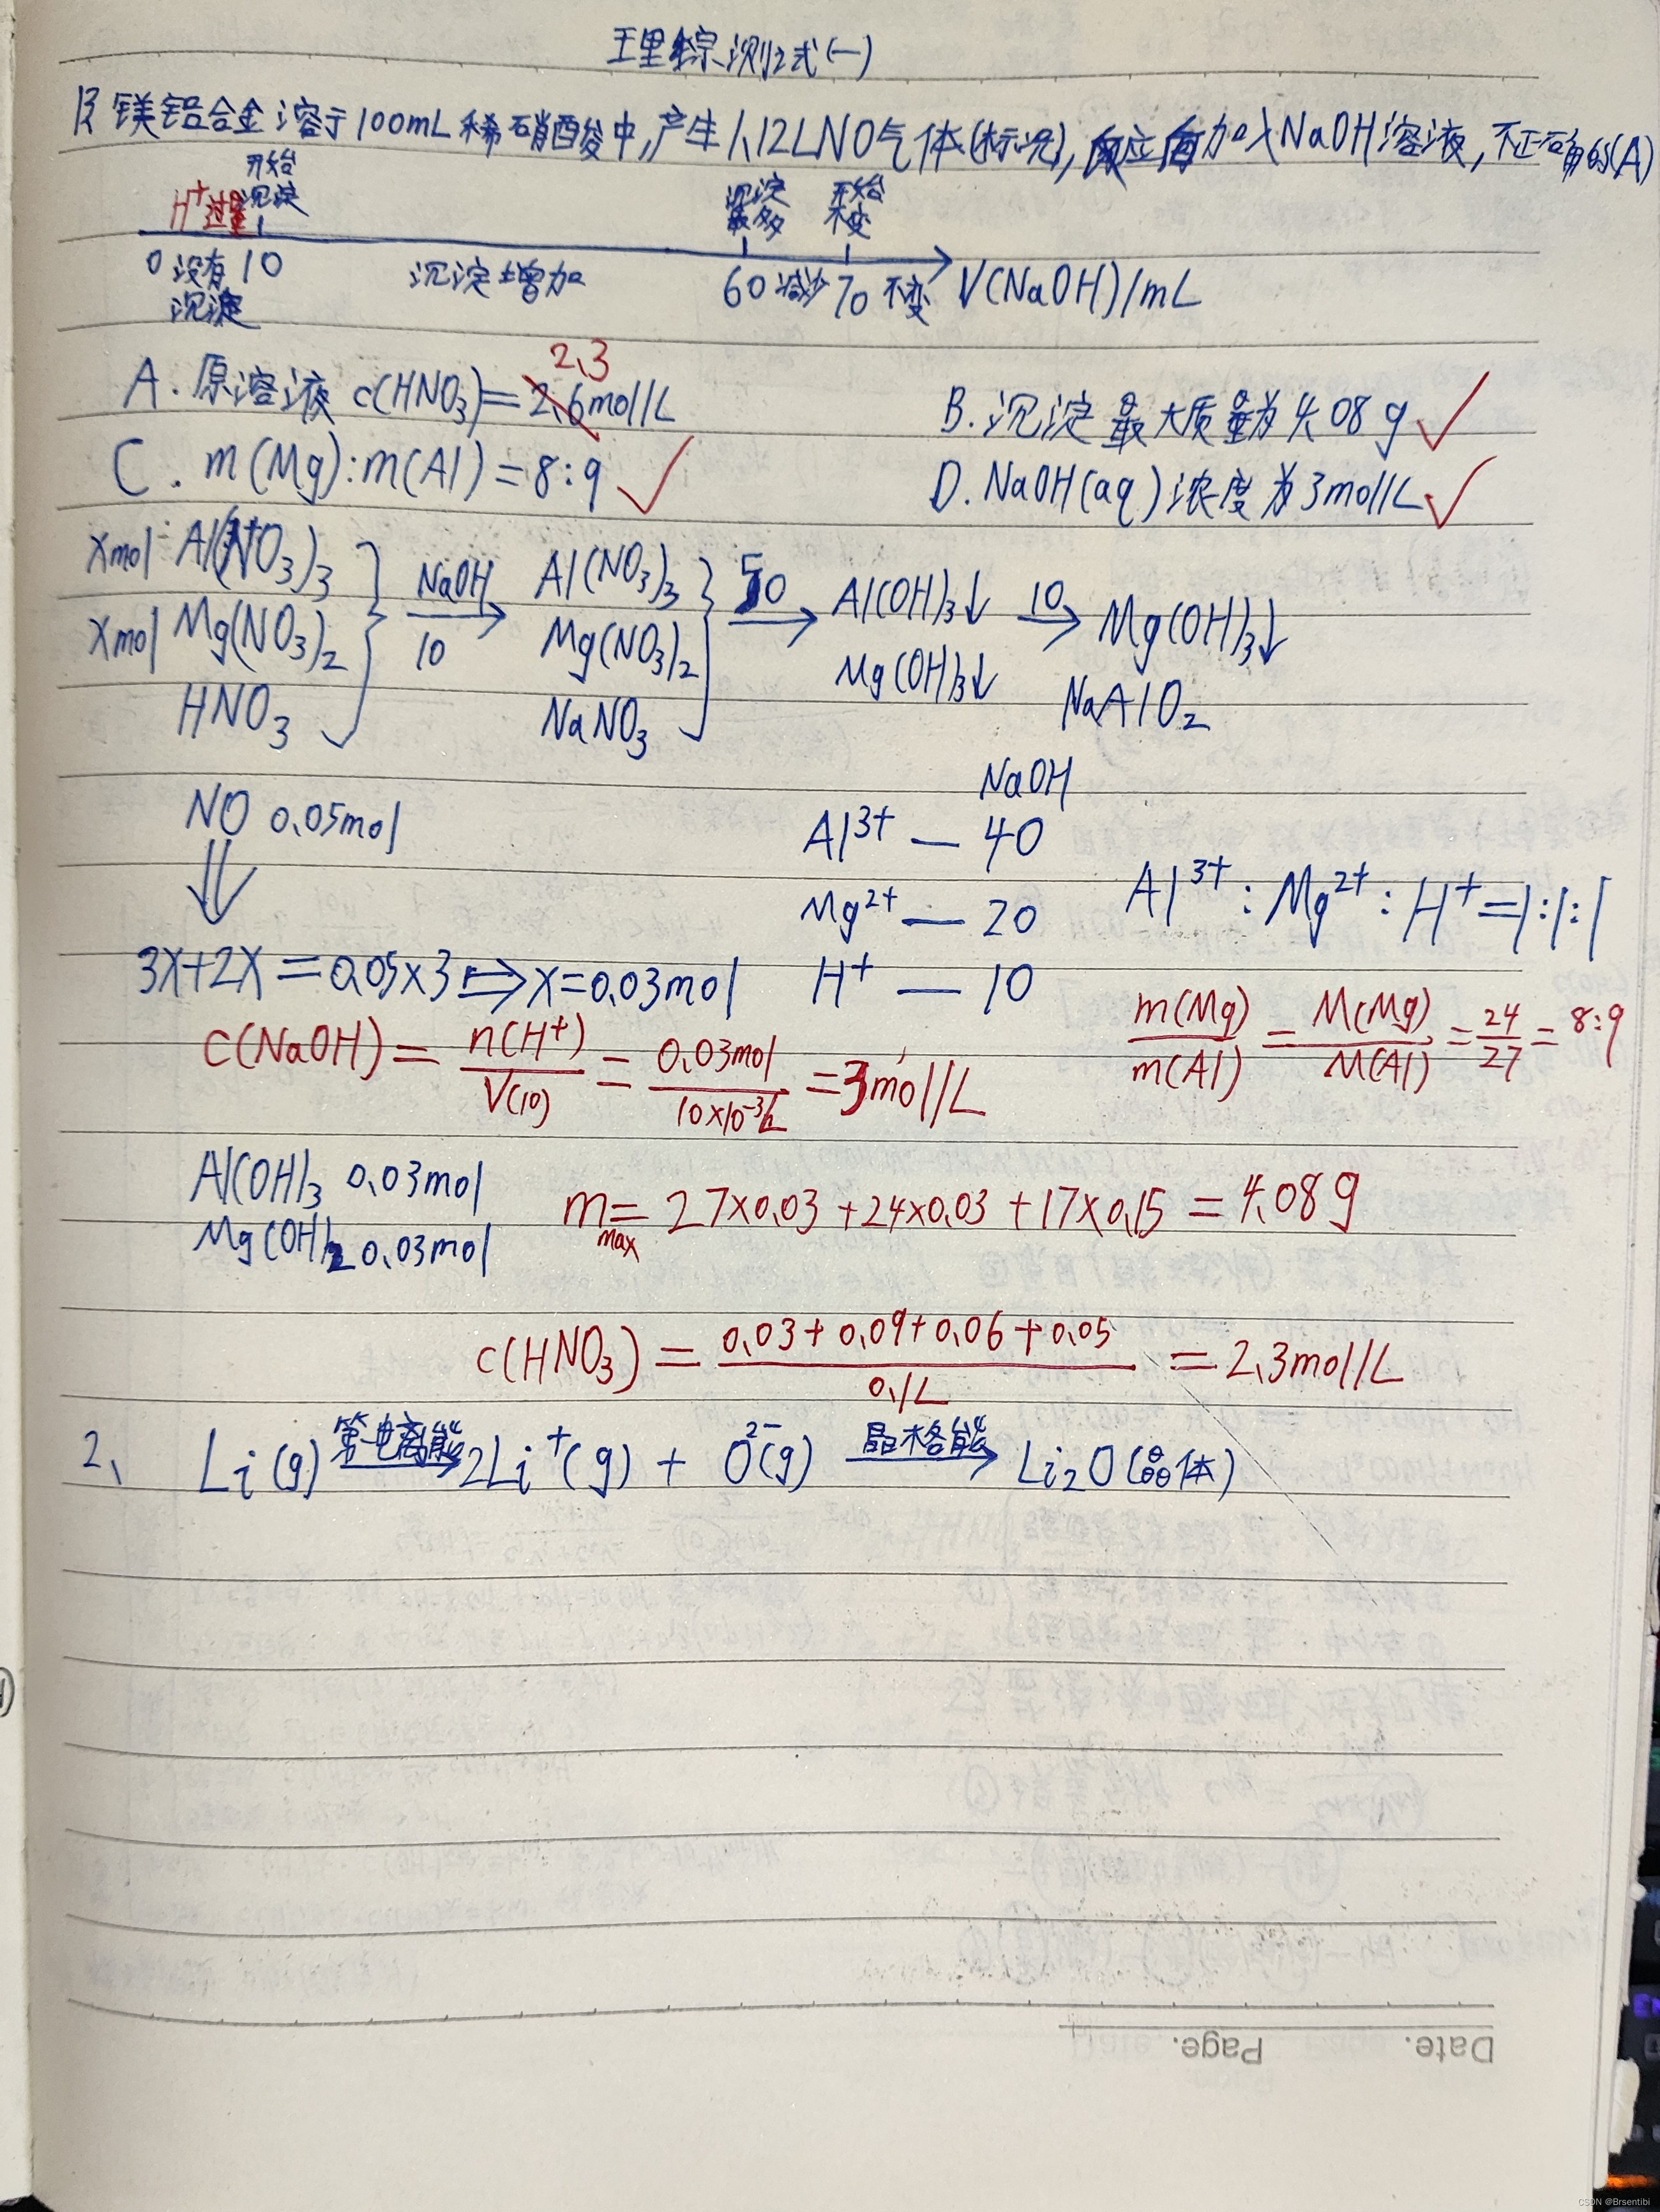 理综测试(一)
13 镁铝合金溶于100mL稀硝酸中,产生1.12LNO气体(标况),反应后加入NaOH溶液,不正确的(A)
开始 沉淀 沉淀 开始
H⁺过量 沉淀 最多 不变
0 没有 10 沉淀增加 60 减少 70 不变 V(NaOH)/mL
沉淀
2.3
A. 原溶液 c(HNO₃)=2.6mol/L B. 沉淀最大质量为4.08g ✓
C. m(Mg):m(Al)=8:9 ✓ D. NaOH(aq)浓度为3mol/L ✓
xmol Al(NO₃)₃ NaOH Al(NO₃)₃ 50 Al(OH)₃↓ 10 Mg(OH)₃↓
xmol Mg(NO₃)₂ 10 Mg(NO₃)₂ Mg(OH)₃↓ NaAlO₂
HNO₃ NaNO₃
NO 0.05mol NaOH
Al³⁺ — 40
Mg²⁺ — 20 Al³⁺:Mg²⁺:H⁺=1:1:1
3x+2x=0.05×3⇒x=0.03mol H⁺ — 10
c(NaOH)=n(H⁺)/V(10)=0.03mol/10×10⁻³L=3mol/L m(Mg)/m(Al)=M(Mg)/M(Al)=24/27=8:9
Al(OH)₃ 0.03mol m max=27×0.03+24×0.03+17×0.15=4.08g
Mg(OH)₂ 0.03mol
c(HNO₃)=0.03+0.09+0.06+0.05/0.1L=2.3mol/L
2、 Li(g) 第一电离能→ 2Li⁺(g) + O²⁻(g) 晶格能→ Li₂O(晶体)
Date. Page.
CSDN @Brsentibi